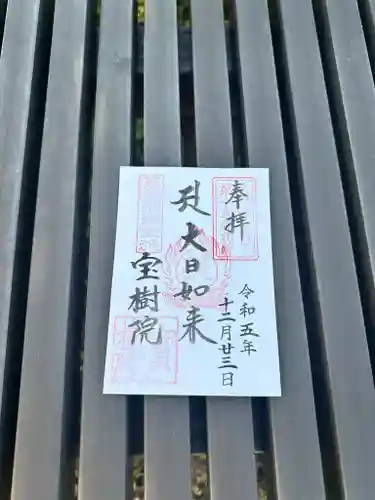 奉拝
令和五年
十二月廿三日
大日如来
宝樹院